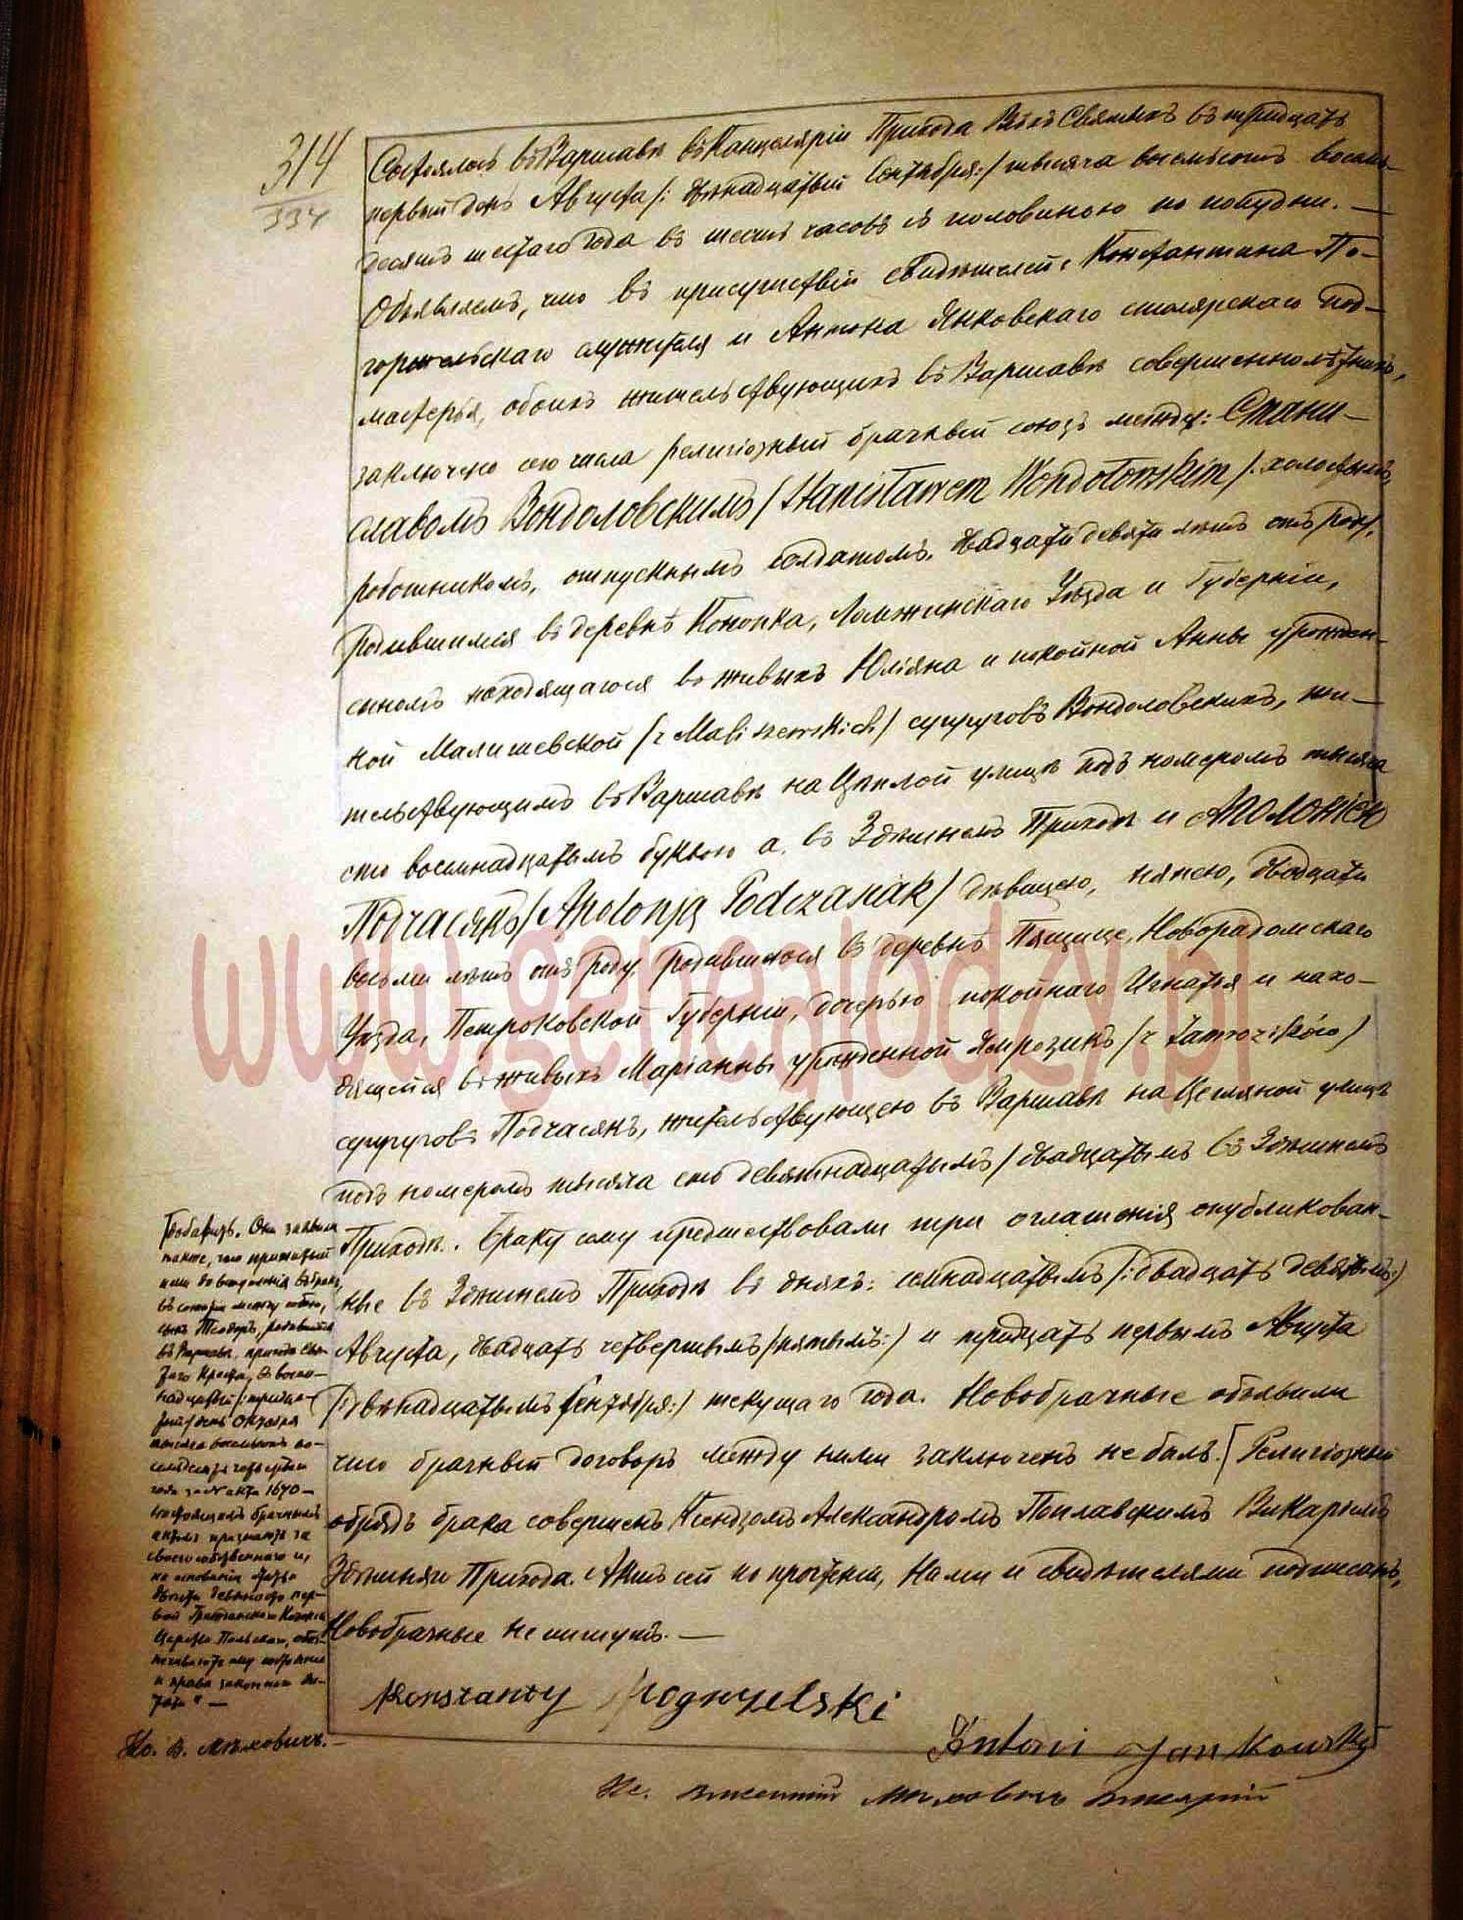 314
334
Состоялось въ Варшавѣ въ Канцеляріи Прихода Всѣхъ Святыхъ въ тридцать
первый день Августа /: двѣнадцатый Сентября:/ тысяча восемьсотъ восемь-
десятъ шестаго года въ шесть часовъ съ половиною по полудни. —
Объявляемъ, что въ присутствіи свидѣтелей: Константина По-
горжельскаго служителя и Антона Янковскаго столярскаго под-
мастерья, обоихъ жительствующихъ въ Варшавѣ совершеннолѣтнихъ,
заключено сего числа религіозный брачный союзъ между: Стани-
славомъ Вондоловскимъ /Stanisławem Wondołowskim/ холостымъ,
работникомъ, отпускнымъ солдатомъ, двадцати девяти лѣтъ отъ роду,
родившимся въ деревнѣ Конопка, Ломжинскаго Уѣзда и Губерніи,
сыномъ находящагося въ живыхъ Юліяна и покойной Анны урожден-
ной Малишевской /z Maliszewskich/ супруговъ Вондоловскихъ, жи-
тельствующимъ въ Варшавѣ на Цѣплой улицѣ подъ номеромъ тысяча
сто восемнадцатымъ буквою а. въ Здѣшнемъ Приходѣ и Аполоніею
Подчасякъ /Apolonją Podczasiak/ дѣвицею, нянею, двадцати
восьми лѣтъ отъ роду, родившеюся въ деревнѣ Новорадомскаго
Уѣзда, Петроковской Губерніи, дочерью покойнаго Игнатія и нахо-
дящейся въ живыхъ Маріанны урожденной Ямрозикъ /z Jamrozików/
супруговъ Подчасякъ, жительствующею въ Варшавѣ на Цегляной улицѣ
подъ номеромъ тысяча сто девятнадцатымъ /двадцатымъ въ Здѣшнемъ
Приходѣ. Браку сему предшествовали три оглашенія опубликован-
ные въ Здѣшнемъ Приходѣ въ дняхъ: семнадцатымъ /: двадцать девятымъ:/
Августа, двадцать четвертымъ /пятымъ:/ и тридцать первымъ Августа
/:двѣнадцатымъ Сентября:/ текущаго года. Новобрачные объявили
что брачный договоръ между ними заключенъ не былъ. [Религіозный
обрядъ брака совершенъ Ксендзомъ Александромъ Поплавскимъ Викаріемъ
Здѣшняго Прихода. Актъ сей по прочтеніи, Нами и свидѣтелями подписанъ,
Новобрачные не пишутъ. —
Они заявили
также, что прижитый
ими до вступленія въ бракъ,
сынъ Теодоръ, родившійся
въ Варшавѣ, прихода Свя-
таго Креста, въ восем-
надцатый /: тридца-
тый/ день Октября
тысяча восемьсотъ во-
семьдесятъ
года за № акта 1670 —
настоящимъ брачнымъ
актомъ признаютъ за
своего собственнаго и,
на основаніи статьи
двѣсти девяносто пер-
вой Гражданскаго Кодекса
Царства Польскаго, обез-
печиваютъ ему
и права законнаго ди-
тяти" —
Кс. В. Мѣховичъ. —
Konstanty Pogrzelski
Antoni Jankowsky
Кс. Викентій Мѣховичъ Викарій
www.genealodzy.pl